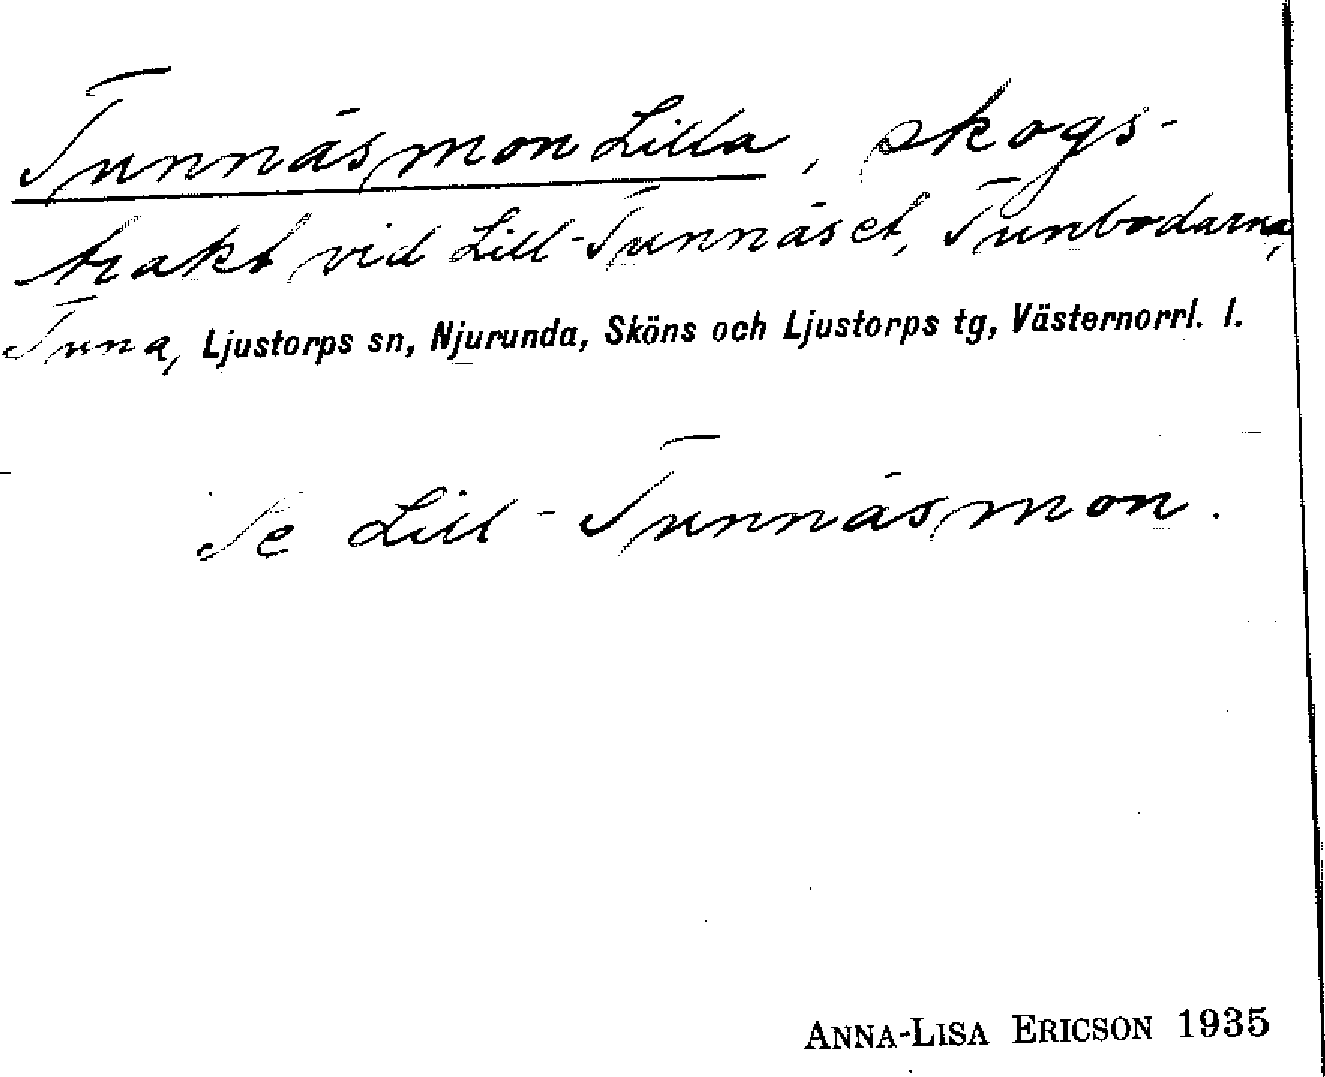 Tunnäsmon Lilla, skogs-
trakt vid Lill-Tunnäset, Tunbodarna,
Tuna, Ljustorps sn, Njurunda, Sköns och Ljustorps tg, Västernorrl. l.
Se Lill-Tunnäsmon.
ANNA-LISA ERICSON 1935